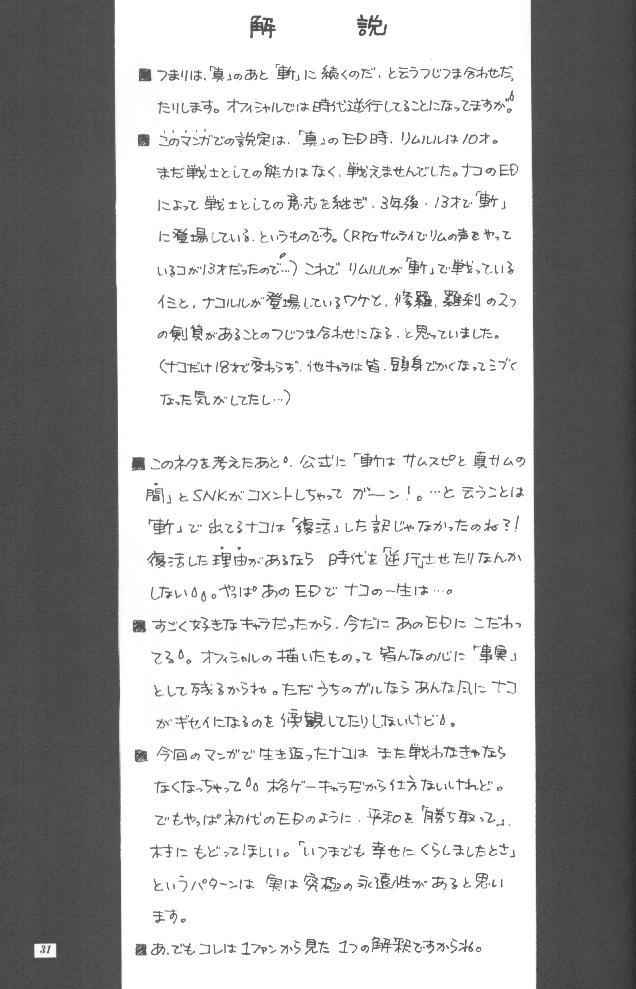 解説
■つまりは、「真」のあと「斬」に続くのだ、と云うつじつま合わせだ
たりします。オフィシャルでは時代逆行してることになってますが。
■このマンガでの設定は、「真」のED時、リムルルは10才。
まだ戦士としての能力はなく、戦えませんでした。ナコのED
によって戦士としての意志を継ぎ、3年後・13才で「斬」
に登場している、というものです。(RPGサムライでリムの声をやって
いるコが13才だったので…)これでリムルルが「斬」で戦っている
イミと、ナコルルが登場しているワケと、修羅、羅刹の2つ
の剣質があることのつじつま合わせになる、と思っていました。
(ナコだけ18才で変わらず、他キャラは皆、頭身でかくなってシブく
なった気がしてたし…)
■このネタを考えたあと、公式に「斬はサムスピと真サムの
間」とSNKがコメントしちゃってガーン!。…と云うことは
「斬」で出てるナコは「復活」した訳じゃなかったのね?!
復活した理由があるなら時代を「逆行」させたりなんか
しない。やっぱあのEDでナコの一生は…。
■すごく好きなキャラだったから、今だにあのEDにこだわっ
てる。オフィシャルの描いたものって皆んなの心に「事実」
として残るからね。ただうちのガルならあんな風にナコ
がギセイになるのを傍観してたりしないけど。
■今回のマンガで生き返ったナコはまた戦わなきゃなら
なくなっちゃって 格ゲーキャラだから仕方ないけれど。
でもやっぱ初代のEDのように、平和を「勝ち取って」、
村にもどってほしい。「いつまでも幸せにくらしましたとさ」
というパターンは実は究極の永遠性があると思い
ます。
■あ、でもコレは1ファンから見た1つの解釈ですからね。
31